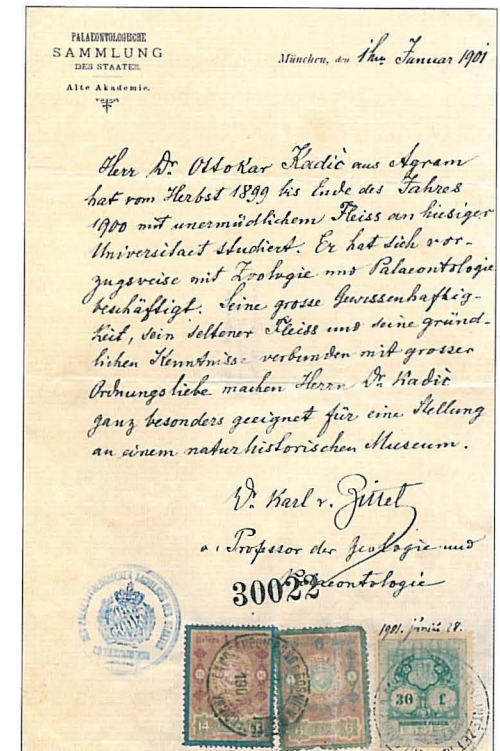 PALAEONTOLOGISCHE
SAMMLUNG
DES STAATES.
Alte Akademie.
München, den 1ten Januar 1901
Herr Dr Ottokar Kadić aus Agram
hat vom Herbst 1899 bis Ende des Jahres
1900 mit unermüdlichem Fleiss an hiesiger
Universitaet studiert. Er hat sich vor-
zugsweise mit Zoologie und Palaeontologie
beschäftigt. Seine grosse Gewissenhaftig-
keit, sein seltener Fleiss und seine gründ-
lichen Kenntnisse verbunden mit grosser
Ordnungsliebe machen Herrn Dr Kadić
ganz besonders geeignet für eine Stellung
an einem naturhistorischen Museum.
Dr Karl v. Zittel
o. Professor der Geologie und
Palaeontologie
30022
1901. június 28.
30 f